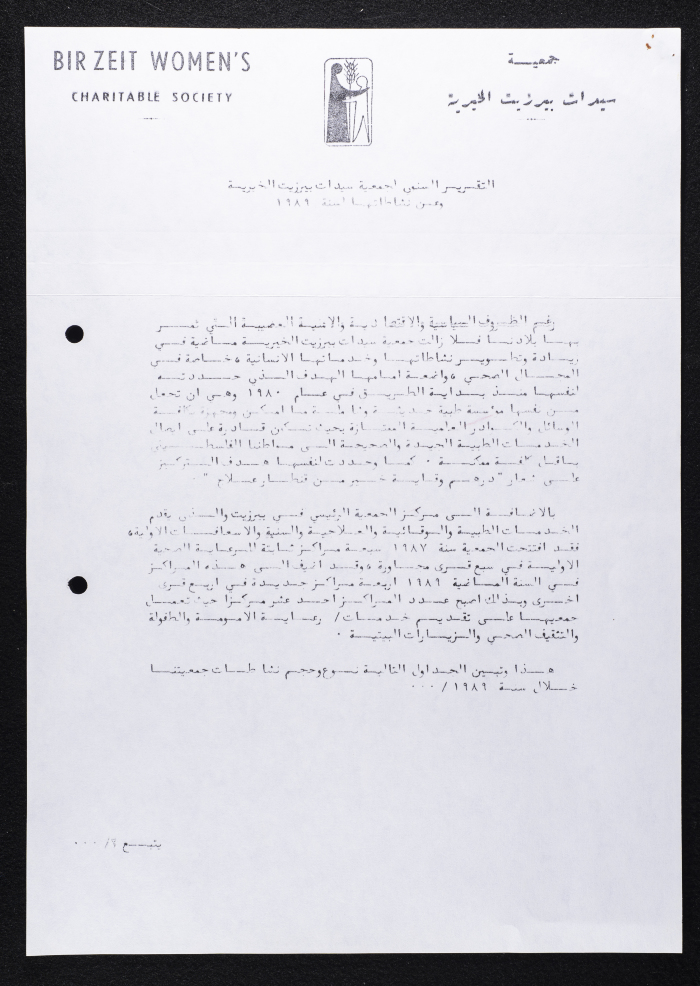 BIR ZEIT WOMEN'S
CHARITABLE SOCIETY
جمعية
سيدات بيرزيت الخيرية
التقرير السنوي لجمعية سيدات بيرزيت الخيرية
وعن نشاطاتها لسنة ١٩٨٩
رغم الظروف السياسية والاقتصادية والامنية العصيبة التي تمر
بها بلادنا فلا زالت جمعية سيدات بيرزيت الخيرية ماضية في
زيادة وتطوير نشاطاتها وخدماتها الانسانية ، خاصة في
المجال الصحي ، واضعة امامها الهدف الذي حددته
لنفسها منذ بداية الطريق في عام ١٩٨٠ وهي ان تجعل
من نفسها مؤسسة طبية حديثة وناطة ما امكن ومجهزة بكافة
الوسائل والكوادر العلمية الممتازة بحيث تكون قادرة على ايصال
الخدمات الطبية الجيدة والصحيحة الى مواطنا الفلسطيني
باقل كلفة ممكنة . كما وحددت لنفسها هدف التركيز
على شعار "درهم وقاية خير من قنطار علاج" .
بالاضافة الى مركز الجمعية الرئيسي في بيرزيت والذي يقدم
الخدمات الطبية والوقائية والعلاجية والسنية والاسعافات الاولية ،
فقد افتتحت الجمعية سنة ١٩٨٧ سبعة مراكز ثابتة للرعاية الصحية
الاولية في سبع قرى مجاورة ، وقد اضيف الى هذه المراكز
في السنة الماضية ١٩٨٩ اربعة مراكز جديدة في اربع قرى
اخرى وبذلك اصبح عدد المراكز احد عشر مركزا حيث تعمل
جميعها على تقديم خدمات / رعاية الامومة والطفولة
والتثقيف الصحي والزيارات البيتية .
هذا وتبين الجداول التالية نوع وحجم نشاطات جمعيتنا
خلال سنة ١٩٨٩ / ...
يتبع /٢ ...